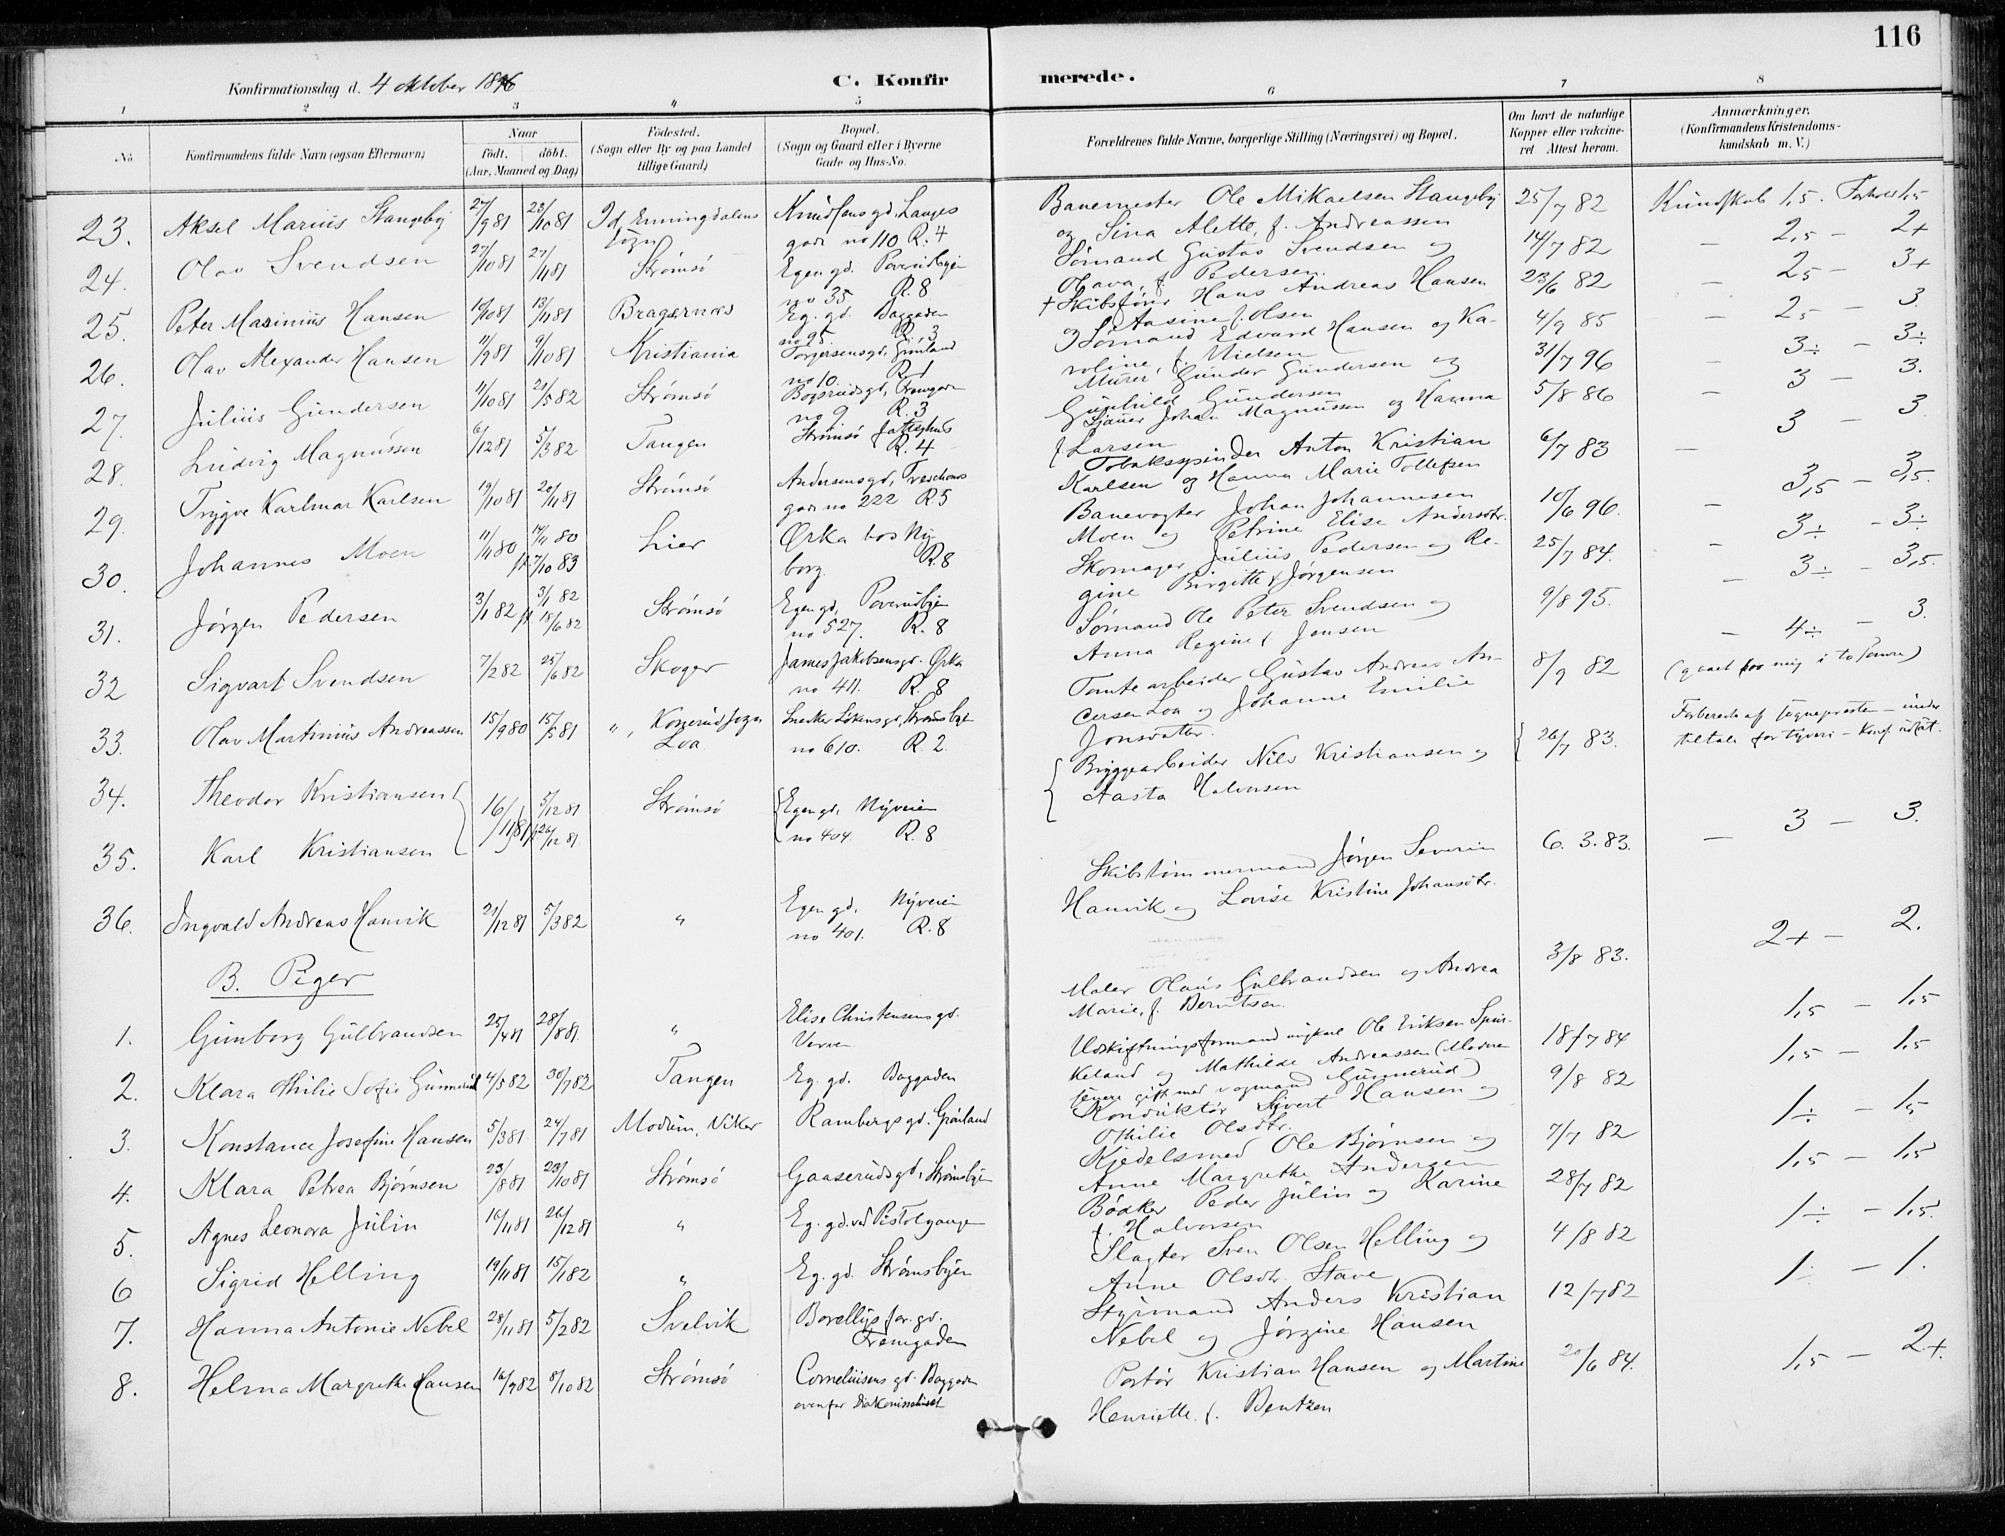 116
Konfirmationsdag d. 4 oktober 1896
C. Konfirmerede.
1 2 3 4 5 6 7 8
No. Konfirmandens fulde Navn (ogsaa Efternavn) Naar født. døbt. (Aar, Maaned og Dag) Fødested. (Sogn eller By og paa Landet tillige Gaard) Bopæl. (Sogn og Gaard eller i Byerne Gade og Hus-No. Forældrenes fulde Navne, borgerlige Stilling (Næringsvei) og Bopæl. Om havt de naturlige Kopper eller vakcineret Attest herom. Anmærkninger. (Konfirmandens Kristendomskundskab m. V.)
23. Aksel Marius Stangeby 27/9 81 23/10 81 Id, Enningdalens Sogn Knudsens gd, Langes gade no 110 R. 4 Banemester Ole Mikaelsen Stangeby og Lina Alette, f. Andreassen 25/7 82 Kundskab 1,5. Forhold 1,5
24. Olav Svendsen 27/10 81 27/11 81 Strømsø Egen gd. Poverudbyen no 35 R. 8 Sømand Gustav Svendsen og Olava, f. Pedersen. 14/7 82 – 2,5 – 2+
25. Peter Marinius Hansen 10/10 81 13/11 81 Bragernæs Eg. gd. Baggaden no 95. R. 3 + Skibsfører Hans Andreas Hansen og Aasine f. Olsen 23/6 82 – 25 – 3+
26. Olav Alexander Hansen 11/9 81 9/10 81 Kristiania Torjersens gd, Grønland no 10. R. 1 Sømand Edvard Hansen og Karoline, f. Nielsen 4/9 85 – 25 – 3.
27. Julius Gundersen 11/10 81 21/5 82 Strømsø Bogsruds gd, Fremgaden no 9 R. 3 Murer Gunder Gundersen og Gunhild Gundersen 31/7 96 – 3÷ – 3÷
28. Ludvig Magnussen 6/12 81 5/3 82 Tangen Strømsø fattighus R. 4 Sjauer Johan Magnussen og Hanna f. Larsen 5/8 86 – 3 – 3.
29. Trygve Karlmar Karlsen 19/10 81 20/11 81 Strømsø Andersens gd, Treschows gade no 222 R. 5 Tobaksspinder Anton Kristian Karlsen og Hanna Marie Tollefsen 6/7 83 – 3 – 3.
30. Johannes Moen 11/11 80 14/11 80 7/10 83 Lier Ørka hos Nyborg R. 8 Banevogter Johan Johannesen Moen og Petrine Elise Andersdtr. 10/6 96. – 3,5 – 3,5.
31. Jørgen Pedersen 3/1 82 3/1 82 18/6 82 Strømsø Egen gd, Poverudbyen no 527. R. 8 Skomager Julius Pedersen og Regine Birgitte f. Jørgensen 25/7 84. – 3÷ – 3÷
32 Sigvart Svendsen 7/2 82 25/6 82 Skoger James Jakobsens gd. Ørka no 411. R. 8 Sømand Ole Peter Svendsen og Anna Regine f. Jensen 9/8 95. – 3÷ – 3,5.
33. Olav Martinius Andreassen 15/9 80 15/5 81 „ , Konnerud sogn Loa Snekker Løkens gd, Strømsbyen no 610. R. 2. Tomtearbeider Gustav Andreas Andersen Loa og Johanne Emilie Jonsdater. 8/9 82 – 4÷ – 3.
(gaaet for mig i to somre)
34. Theodor Kristiansen 16/11 81 5/12 81 Strømsø Egen gd, Nyveien no 404. R. 8 Bryggearbeider Nils Kristiansen og Aasta Halvorsen 26/7 83. Forberedt af sogneprsten – under tiltale for tyveri – Konf. udsat.
35. Karl Kristiansen 26/12 81
36. Ingvald Andreas Hanvik 21/12 81 5/3 82 „ Egen gd, Nyveien no 401. R. 8 Skibstømmermand Jørgen Severin Hanvik og Lovise Kristine Johansdtr. 6. 3. 83. – 3 – 3.
B. Piger
1. Gunborg Gulbrandsen 25/4 81 28/8 81 „ Elise Christensens gd. Maler Olaus Gulbrandsen og Andrea Marie, f. Berntsen. 3/8 83. 2+ – 2.
2. Klara Othilie Sofie Gunnerud 4/5 82 30/7 82 Tangen Eg. gd. Baggaden Udskiftningsformand ungkarl Ole Eriksen og Mathilde Andreassen (Moderen senere gift med vognmand Gunnerud) 18/7 84 1,5 – 1,5
3. Konstance Josefine Hansen 5/3 81 24/7 81 Modum, Viker Rambergs gd. Grønland Konduktør Sivert Hansen og Othilie Olsdtr. 9/8 82 1,5 – 1,5
4. Klara Petrea Bjørnsen 23/8 81 23/10 81 Strømsø Gaaseruds gd, Strømsbyen Kjedelsmed Ole Bjørnsen og Anne Margrethe Andersen 7/7 82 1÷ – 1,5
5. Agnes Leonora Julin 16/11 81 26/12 81 „ Eg. gd. ved Pistolgangen Bødker Peder Julin og Karine f. Halvorsen 28/7 82 1,5 – 1,5
6 Sigrid Helling 19/11 81 15/1 82 „ Eg. gd. Strømsbyen Slagter Sven Olsen Helling og Anne Olsdtr. Stave 4/8 82 1÷ – 1,5.
7. Hanna Antonie Nebel 28/11 81 5/2 82 Svelvik Borellys for. gd. Fremgaden Styrmand Anders Kristian Nebel og Jørgine Hansen 12/7 82 1÷ – 1.
8. Helma Margrethe Hansen 16/9 82 8/10 82 Strømsø Corneliusens gd. Baggaden ovenfor Diakonissehuset Portør Kristian Hansen og Martine Henriette f. Bentzen 20/6 84. 1,5 – 2+.